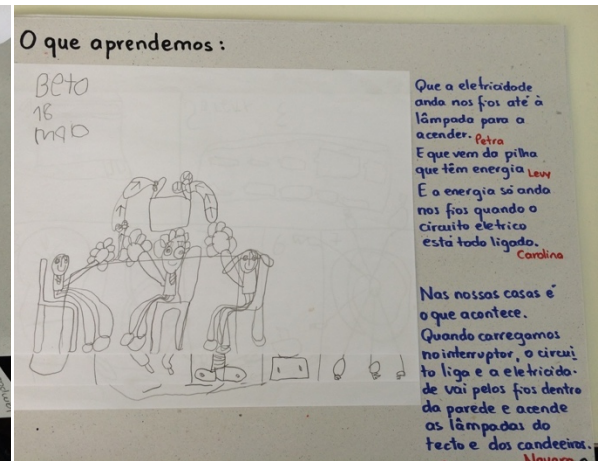 O que aprendemos:
Beto
18
MAD
Que a eletricidade
anda nos fios até à
lâmpada para a
acender. Petra
E que vem da pilha
que têm energia Levy
E a energia só anda
nos fios quando o
circuito eletrico
está todo ligado.
Carolina
Nas nossas casas é
o que acontece.
Quando carregamos
no interruptor, o circui
to liga e a eletricida-
de vai pelos fios dentro
da parede e acende
as lâmpadas do
tecto e dos candeeiros.